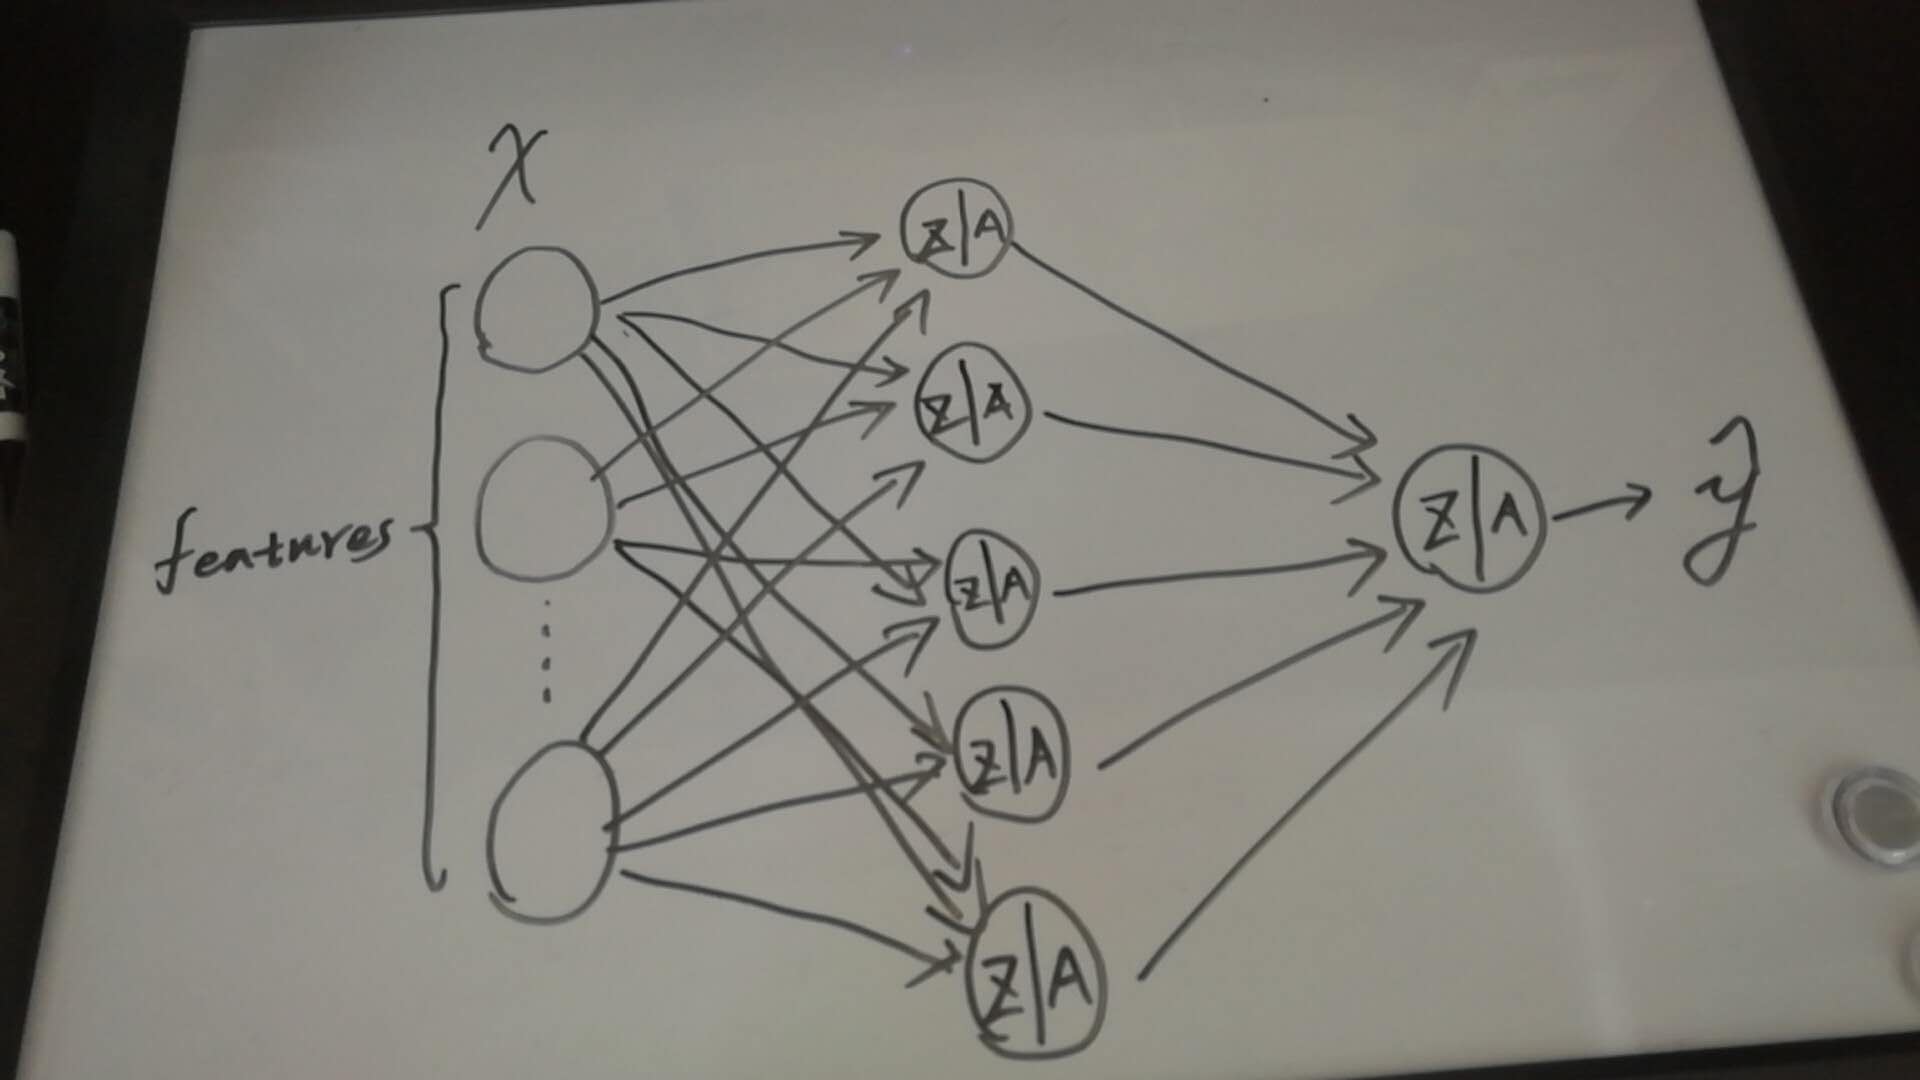 X
features
Z|A
Z|A
Z|A
Z|A
Z|A
Z|A
ŷ